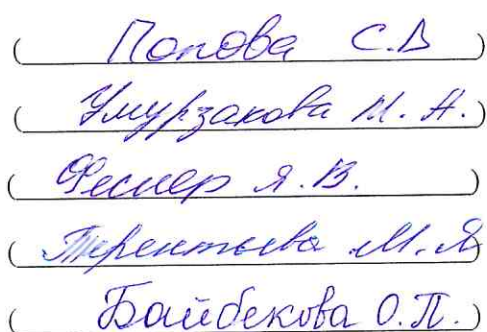 ( Попова С.В )
( Умурзакова М. А. )
( Феслер Я. В. )
( Терентьева М. Я )
( Байбекова О. П. )